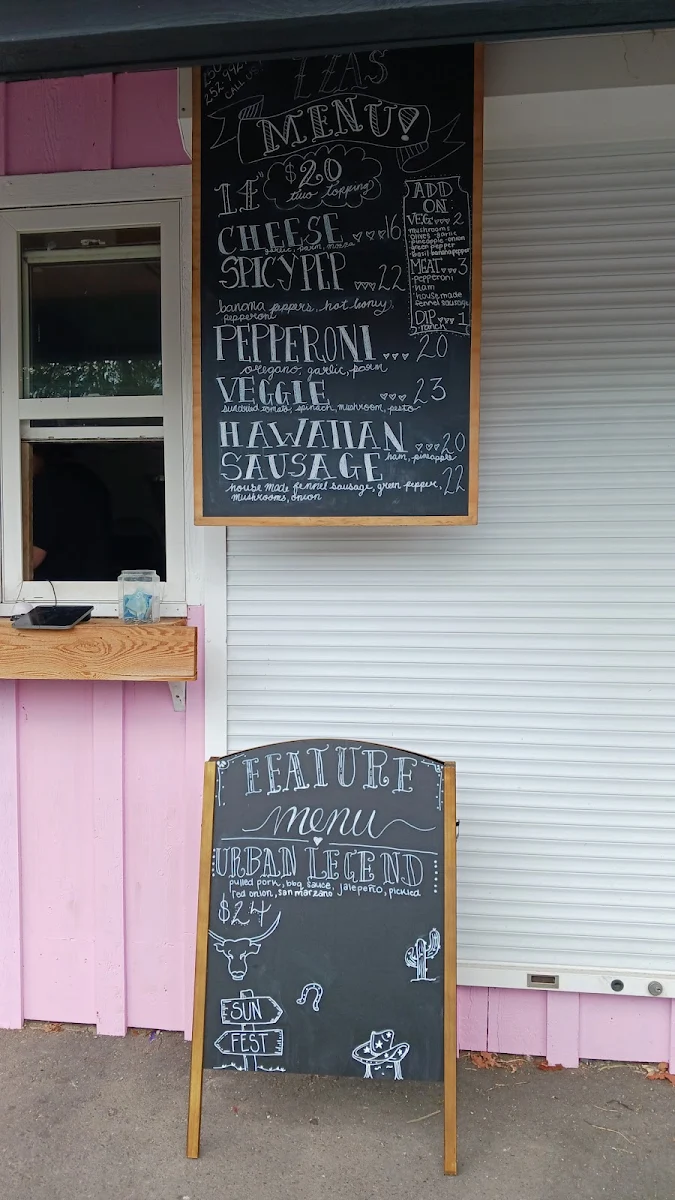 CALL US!
ZZAS
MENU!
11" $20
two topping
CHEESE 16
garlic, parm, mozza
SPICY PEP 22
banana peppers, hot honey,
pepperoni
PEPPERONI 20
oregano, garlic, parm
VEGGIE 23
sundried tomato, spinach, mushroom, pesto
HAWAIIAN 20
ham, pineapple
SAUSAGE 22
house made fennel sausage, green pepper,
mushrooms, onion
ADD
ON:
VEG 2
mushrooms
olives garlic
pineapple onion
green pepper
basil banana pepper
MEAT 3
pepperoni
ham
house made
fennel sausage
DIP 1
ranch
FEATURE
menu
URBAN LEGEND
pulled pork, bbq sauce, jalepeño, pickled
red onion, san marzano
$24
SUN
FEST